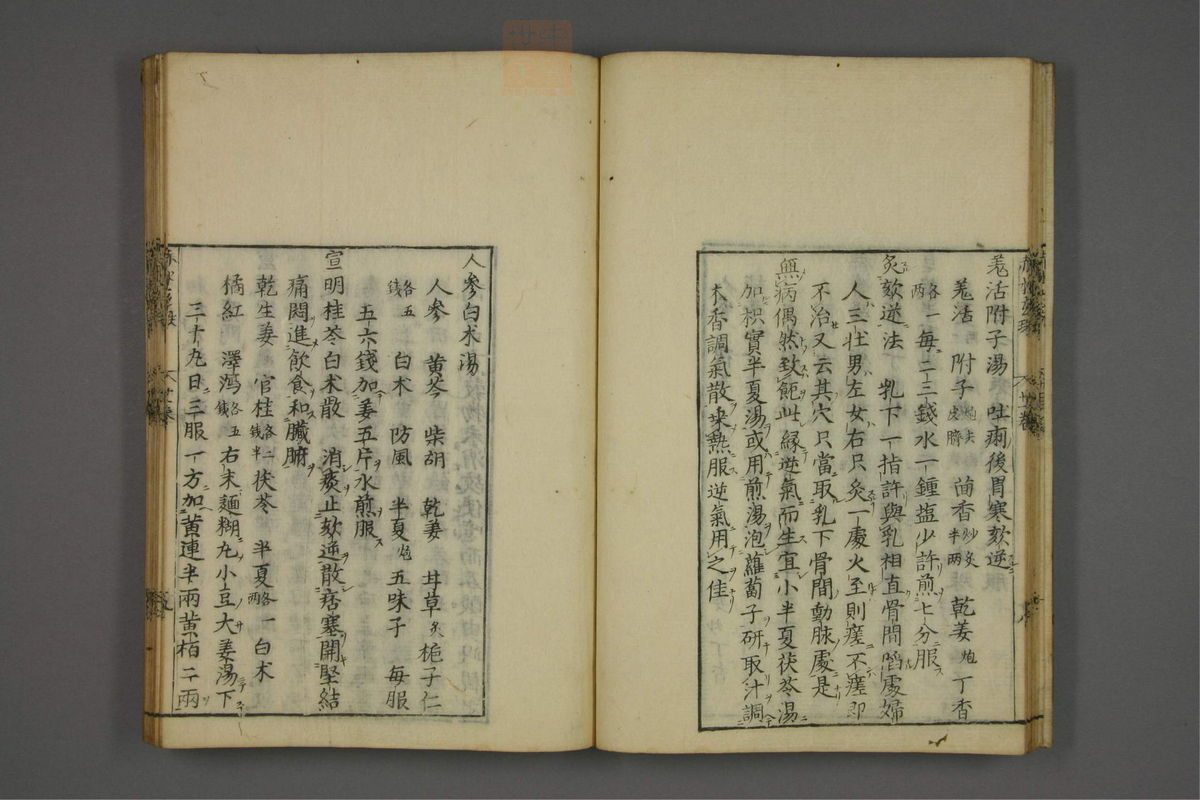 羗活附子湯 吐痢後胃寒欬逆
羗活 附子炮去皮臍 茴香炒炙半兩 乾姜炮 丁香
各一兩 每二三錢水一鍾盐少許煎七分服
灸欬逆法 乳下一指許與乳相直骨間陷處婦
人三壯男左女右只灸一處火至則瘥不瘥即
不治又云其穴只當取乳下骨間動脉處是
無病偶然致飽此縁逆氣而生宜小半夏茯苓湯
加枳實半夏湯或用煎湯泡蘿蔔子研取汁調
木香調氣散乗熱服逆氣用之佳
人參白朮湯
人參 黄芩 柴胡 乾姜 甘草炙 梔子仁
各五錢 白朮 防風 半夏炮 五味子 每服
五六錢加姜五片水煎服
宣明桂苓白朮散 消痰止欬逆散痞塞開堅結
痛悶進飲食和臓腑
乾生姜 官桂各二錢半 茯苓 半夏各一兩 白朮
橘紅 澤瀉各五錢 右末麺糊丸小豆大姜湯下
三十九日三服一方加黄連半兩黄栢二兩